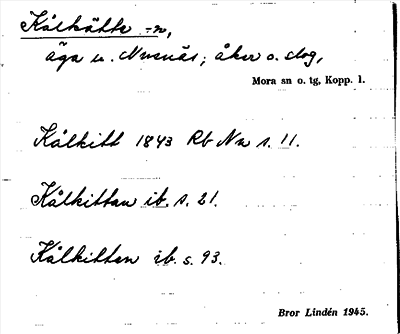 Kålkätte -n,
äga u. Nusnäs; åker o. slog,
Mora sn o. tg, Kopp. l.
Kålkitt 1843 Rb Nn s. 11.
Kålkittan ib. s. 21.
Kålkitten ib. s. 93.
Bror Lindén 1945.